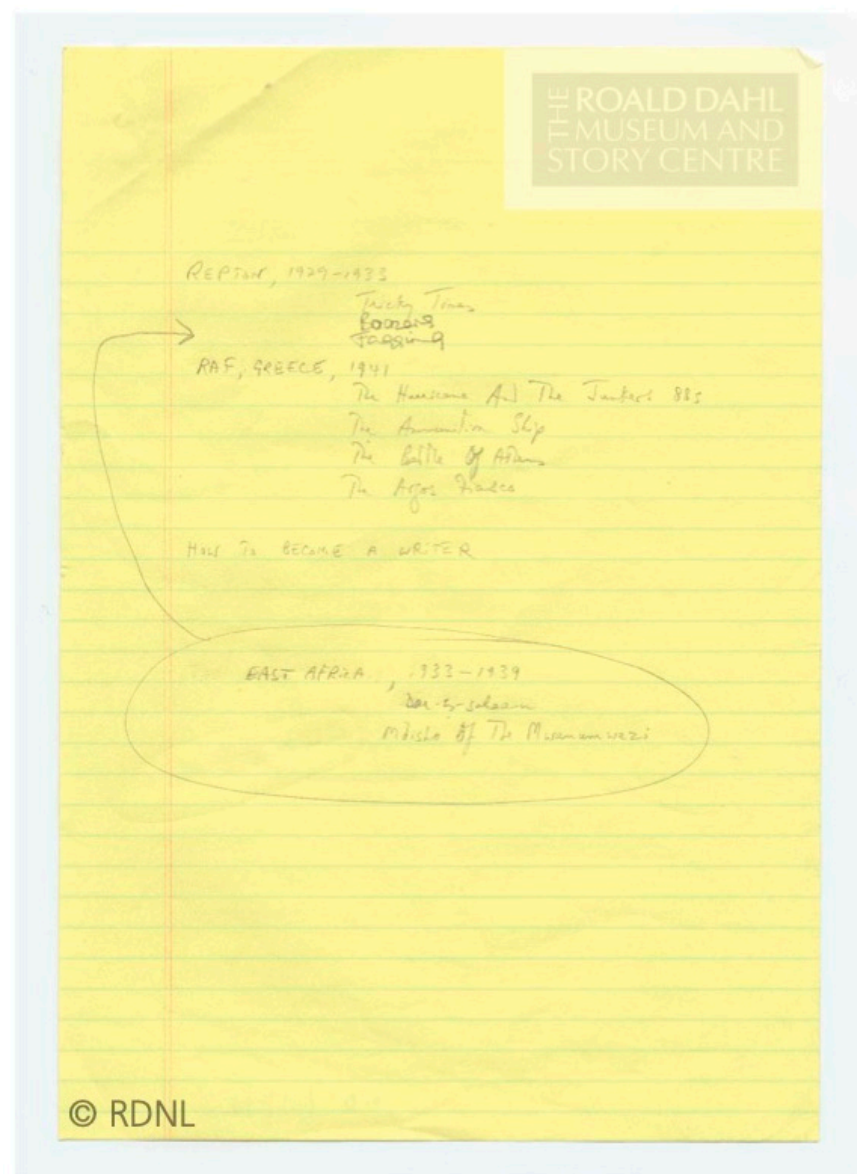 THE ROALD DAHL
MUSEUM AND
STORY CENTRE
REPTON, 1929-1933
Tricky Times
Boazers
Fagging
RAF, GREECE, 1941
The Hurricane And The Junkers 88s
The Ammunition Ship
The Battle Of Athens
The Argos Fiasco
HOW TO BECOME A WRITER
EAST AFRICA, 1933-1939
Dar-es-salaam
Mdisho Of The Mwanumwezi
© RDNL